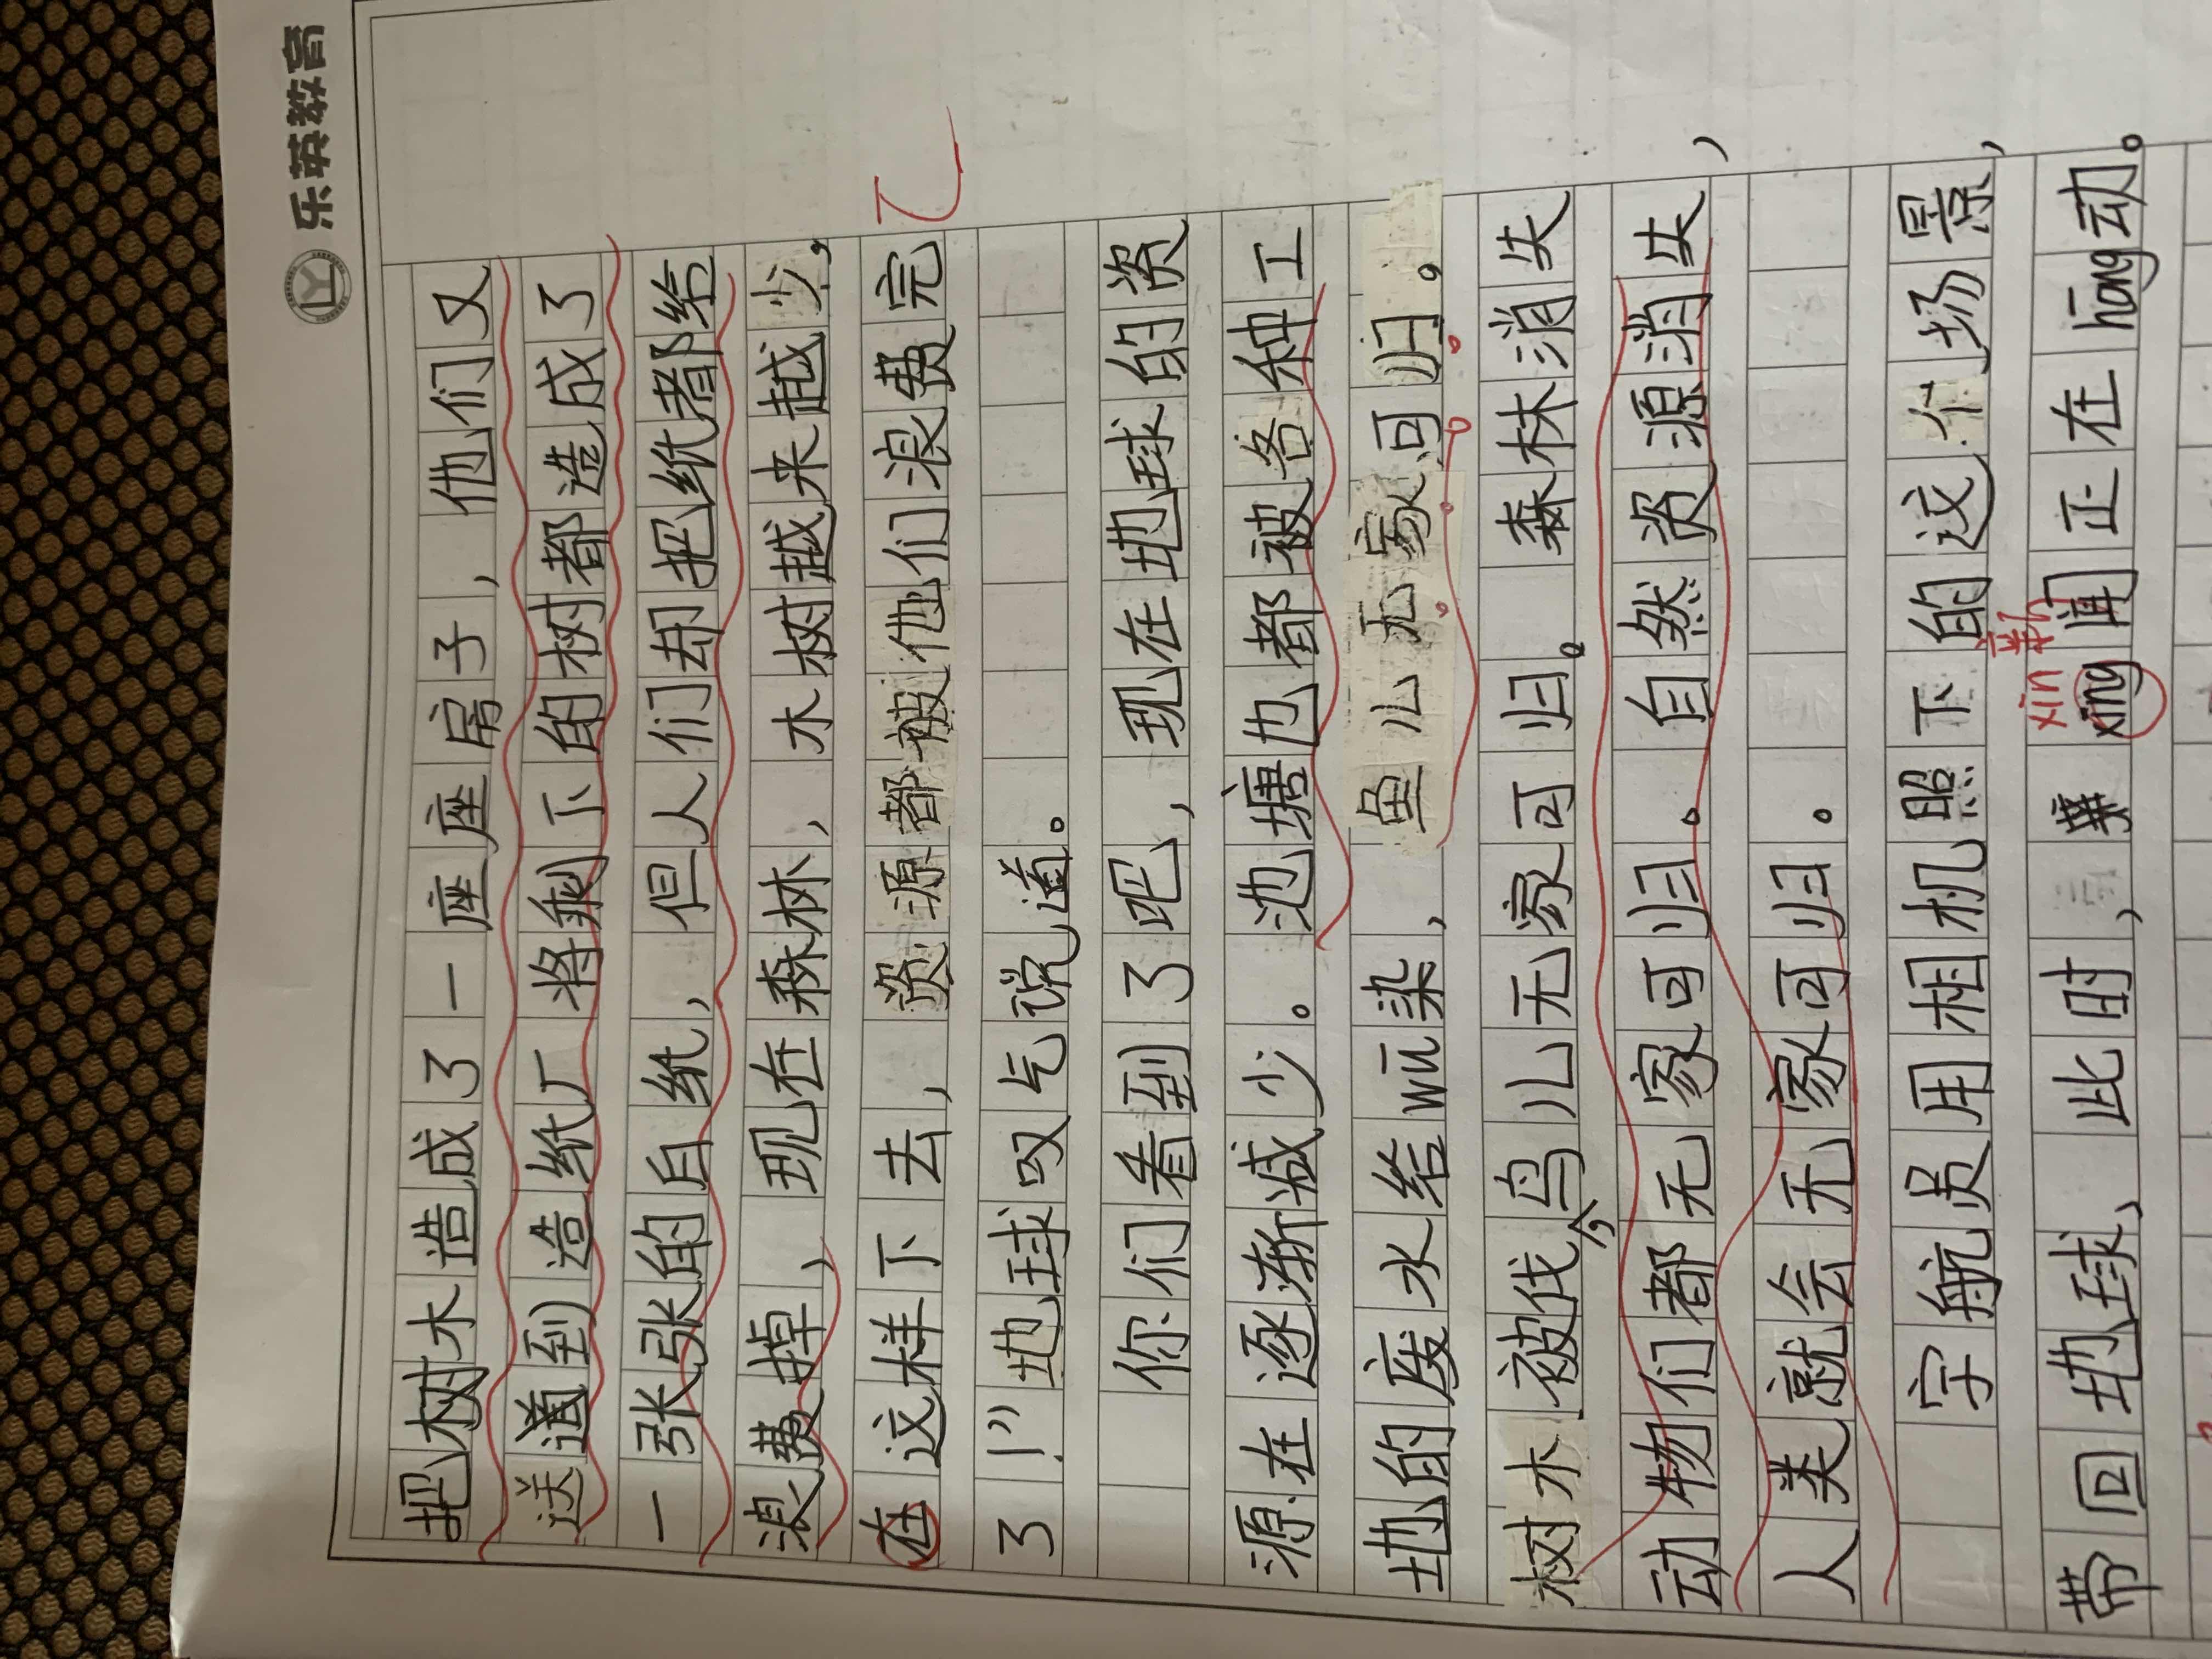 乐英教育
把树木造成了一座座房子，他们又
送道到造纸厂将剩下的树都造成了
一张张的白纸，但人们却把纸都给
浪费掉、现在森林，木树越来越少，
在这样下去，资源都被他们浪费完
了！”地球叹气说道。
你们看到了吧，现在地球的资
源在逐渐减少。池塘也都被各种工
地的废水给wū染，鱼儿无家可归。
树木被伐，鸟儿无家可归。森林消失，
动物们都无家可归。自然资源消失
人类就会无家可归。
字航员用相机照下的这个场景，
xīn 新
带回地球、此时，xīng闻正在hōng动。